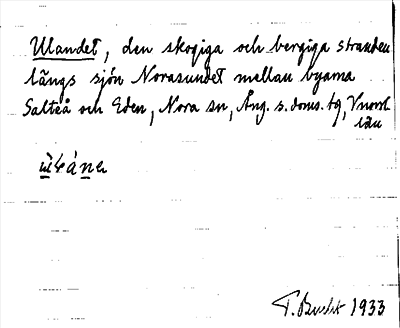 Ulandet, den skogiga och bergiga stranden
längs sjön Norasundet mellan byarna
Salteå och Eden, Nora sn, Ång. s. doms. tg, Vnorrl
län
T. Bucht 1933